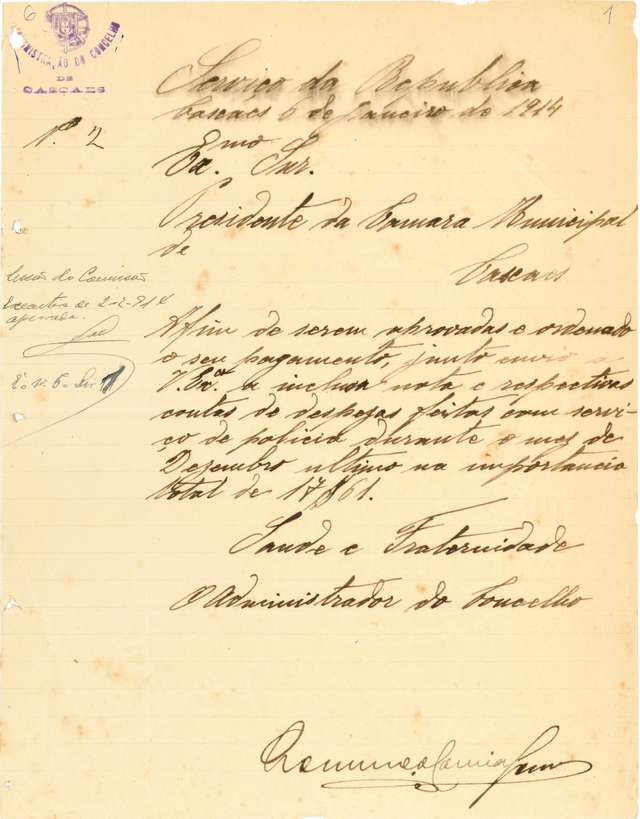 6
1
ADMINISTRAÇÃO DO CONCELHO
DE
CASCAES
Serviço da Republica
Cascaes 6 de Janeiro de 1914
N.º 2
Ex.mo Snr.
Presidente da Camara Municipal
de
Cascaes
Sessão da Comissão
Executiva de 2-2-914
aprovada.
Afim de serem aprovadas e ordenado
o seu pagamento, junto envio a
V. Ex.ª a inclusa nota e respectivas
contas de despezas feitas com servi-
ço de policia durante o mes de
Dezembro ultimo na importancia
total de 17$61.
Saude e Fraternidade
O Administrador do Concelho